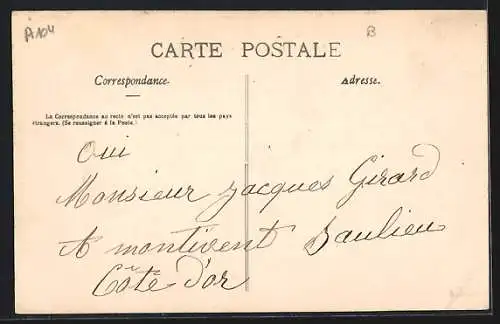 A104
B
CARTE POSTALE
Correspondance.
Adresse.
La Correspondance au recto n'est pas acceptée par tous les pays
étrangers. (Se renseigner à la Poste.)
Oui
Monsieur Jacques Girard
A montivent Baulieu
Côte d'or